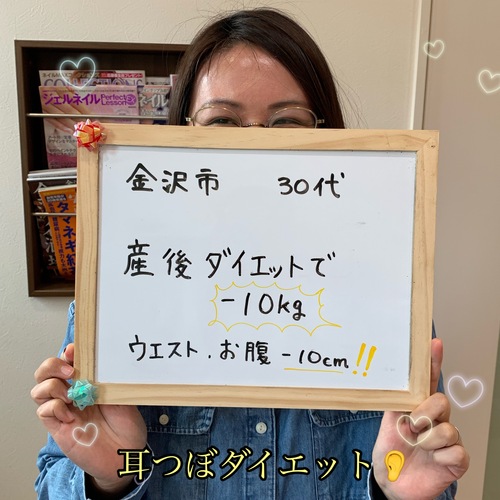 ジェルネイル Perfect Lesson
金沢市 30代
産後ダイエットで
-10kg
ウエスト.お腹 -10cm!!
耳つぼダイエット👂